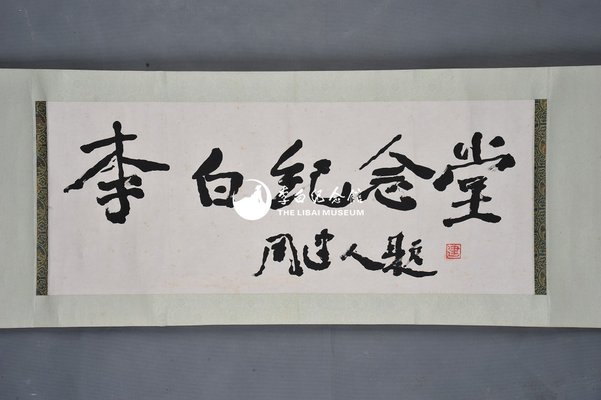 李白纪念堂
李白纪念馆
THE LIBAI MUSEUM
周建人题
建